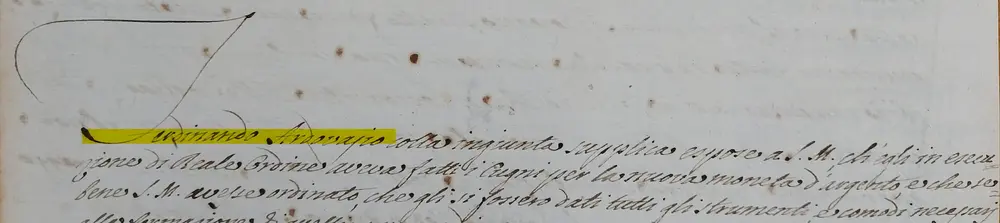 Ferdinando Ardovasio colla ingiunta supplica espose a S. M. ch'egli in esecu
zione di Reale Ordine aveva fatti i Cugni per la nuova moneta d'argento, e che se
bene S. M. avesse ordinato, che gli si fossero dati tutti gli strumenti, e comodi necessarj
alla formazione di quelli